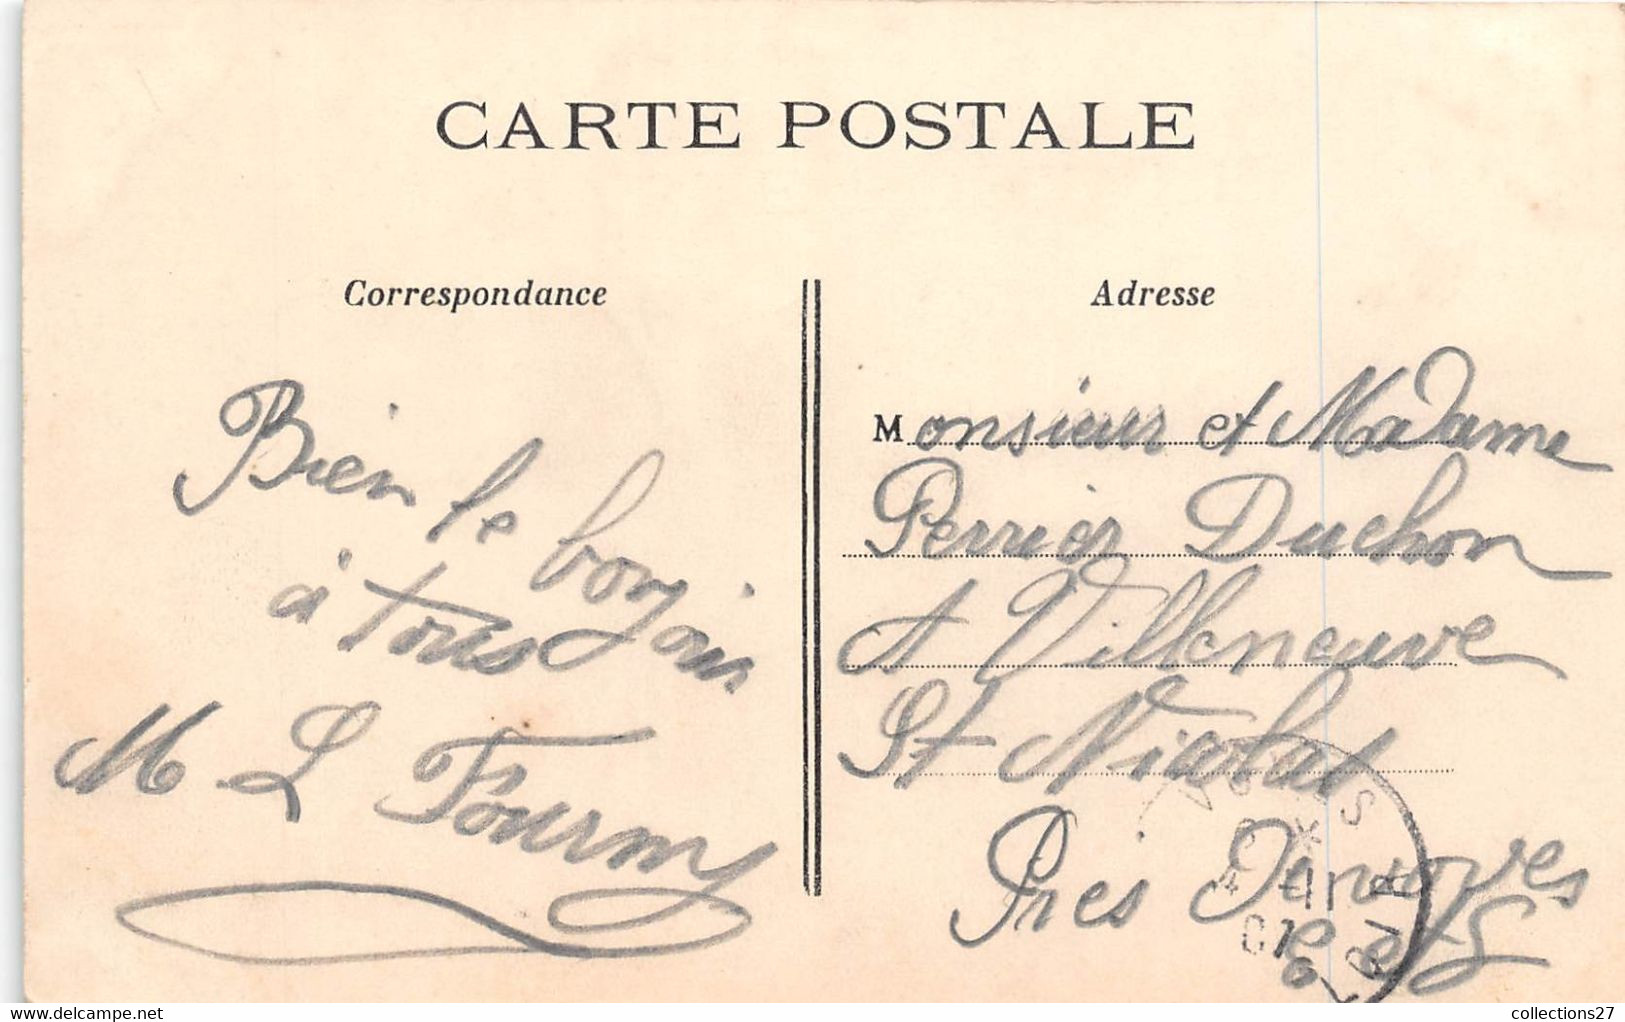 CARTE POSTALE
Correspondance
Bien le bonjour
à tous
M L Fourmy
Adresse
Monsieur et Madame
Perrier Duchon
A Villeneuve
St Nicolas
Près
L et C
delcampe.net
collections27